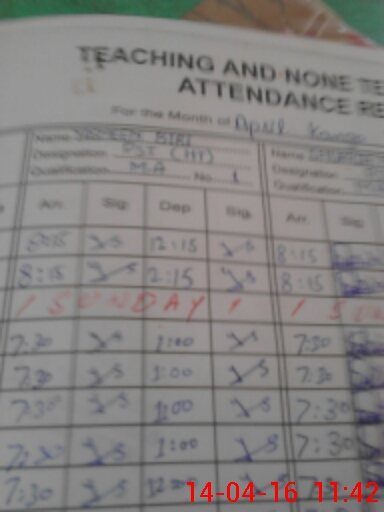 TEACHING AND NONE TE
ATTENDANCE RE
For the Month of April
Name Name
Designation PST (HT) Designation
Qualification M.A No 1 Qualification
Arr. Sig. Dep Sig. Arr. Sig.
8:15 12:15 8:15
8:15 2:15 8:15
1 SUNDAY 1 1 SUN
7:30 1:00 7:30
7:30 1:00 7:30
7:30 1:00 7:30
7:30 1:00 7:30
7:30
14-04-16 11:42